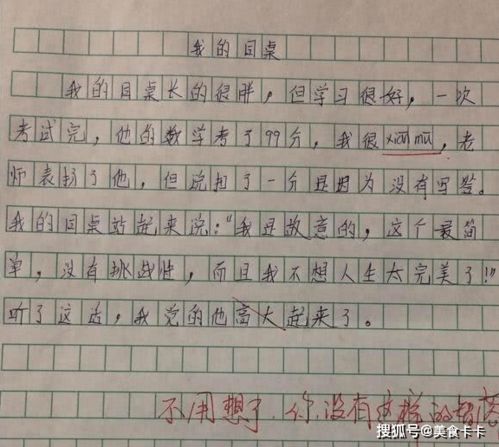 我的同桌
我的同桌长的很胖，但学习很好，一次
考试完，他的数学考了99分，我很xiàn mù，老
师表扬了他，但说扣了一分是因为没有写答。
我的同桌站起来说："我是故意的，这个最简
单，没有挑战性，而且我不想人生太完美了！"
听了这话，我觉的他高大起来了。
不用想了，你没有这样的智商
搜狐号@美食卡卡